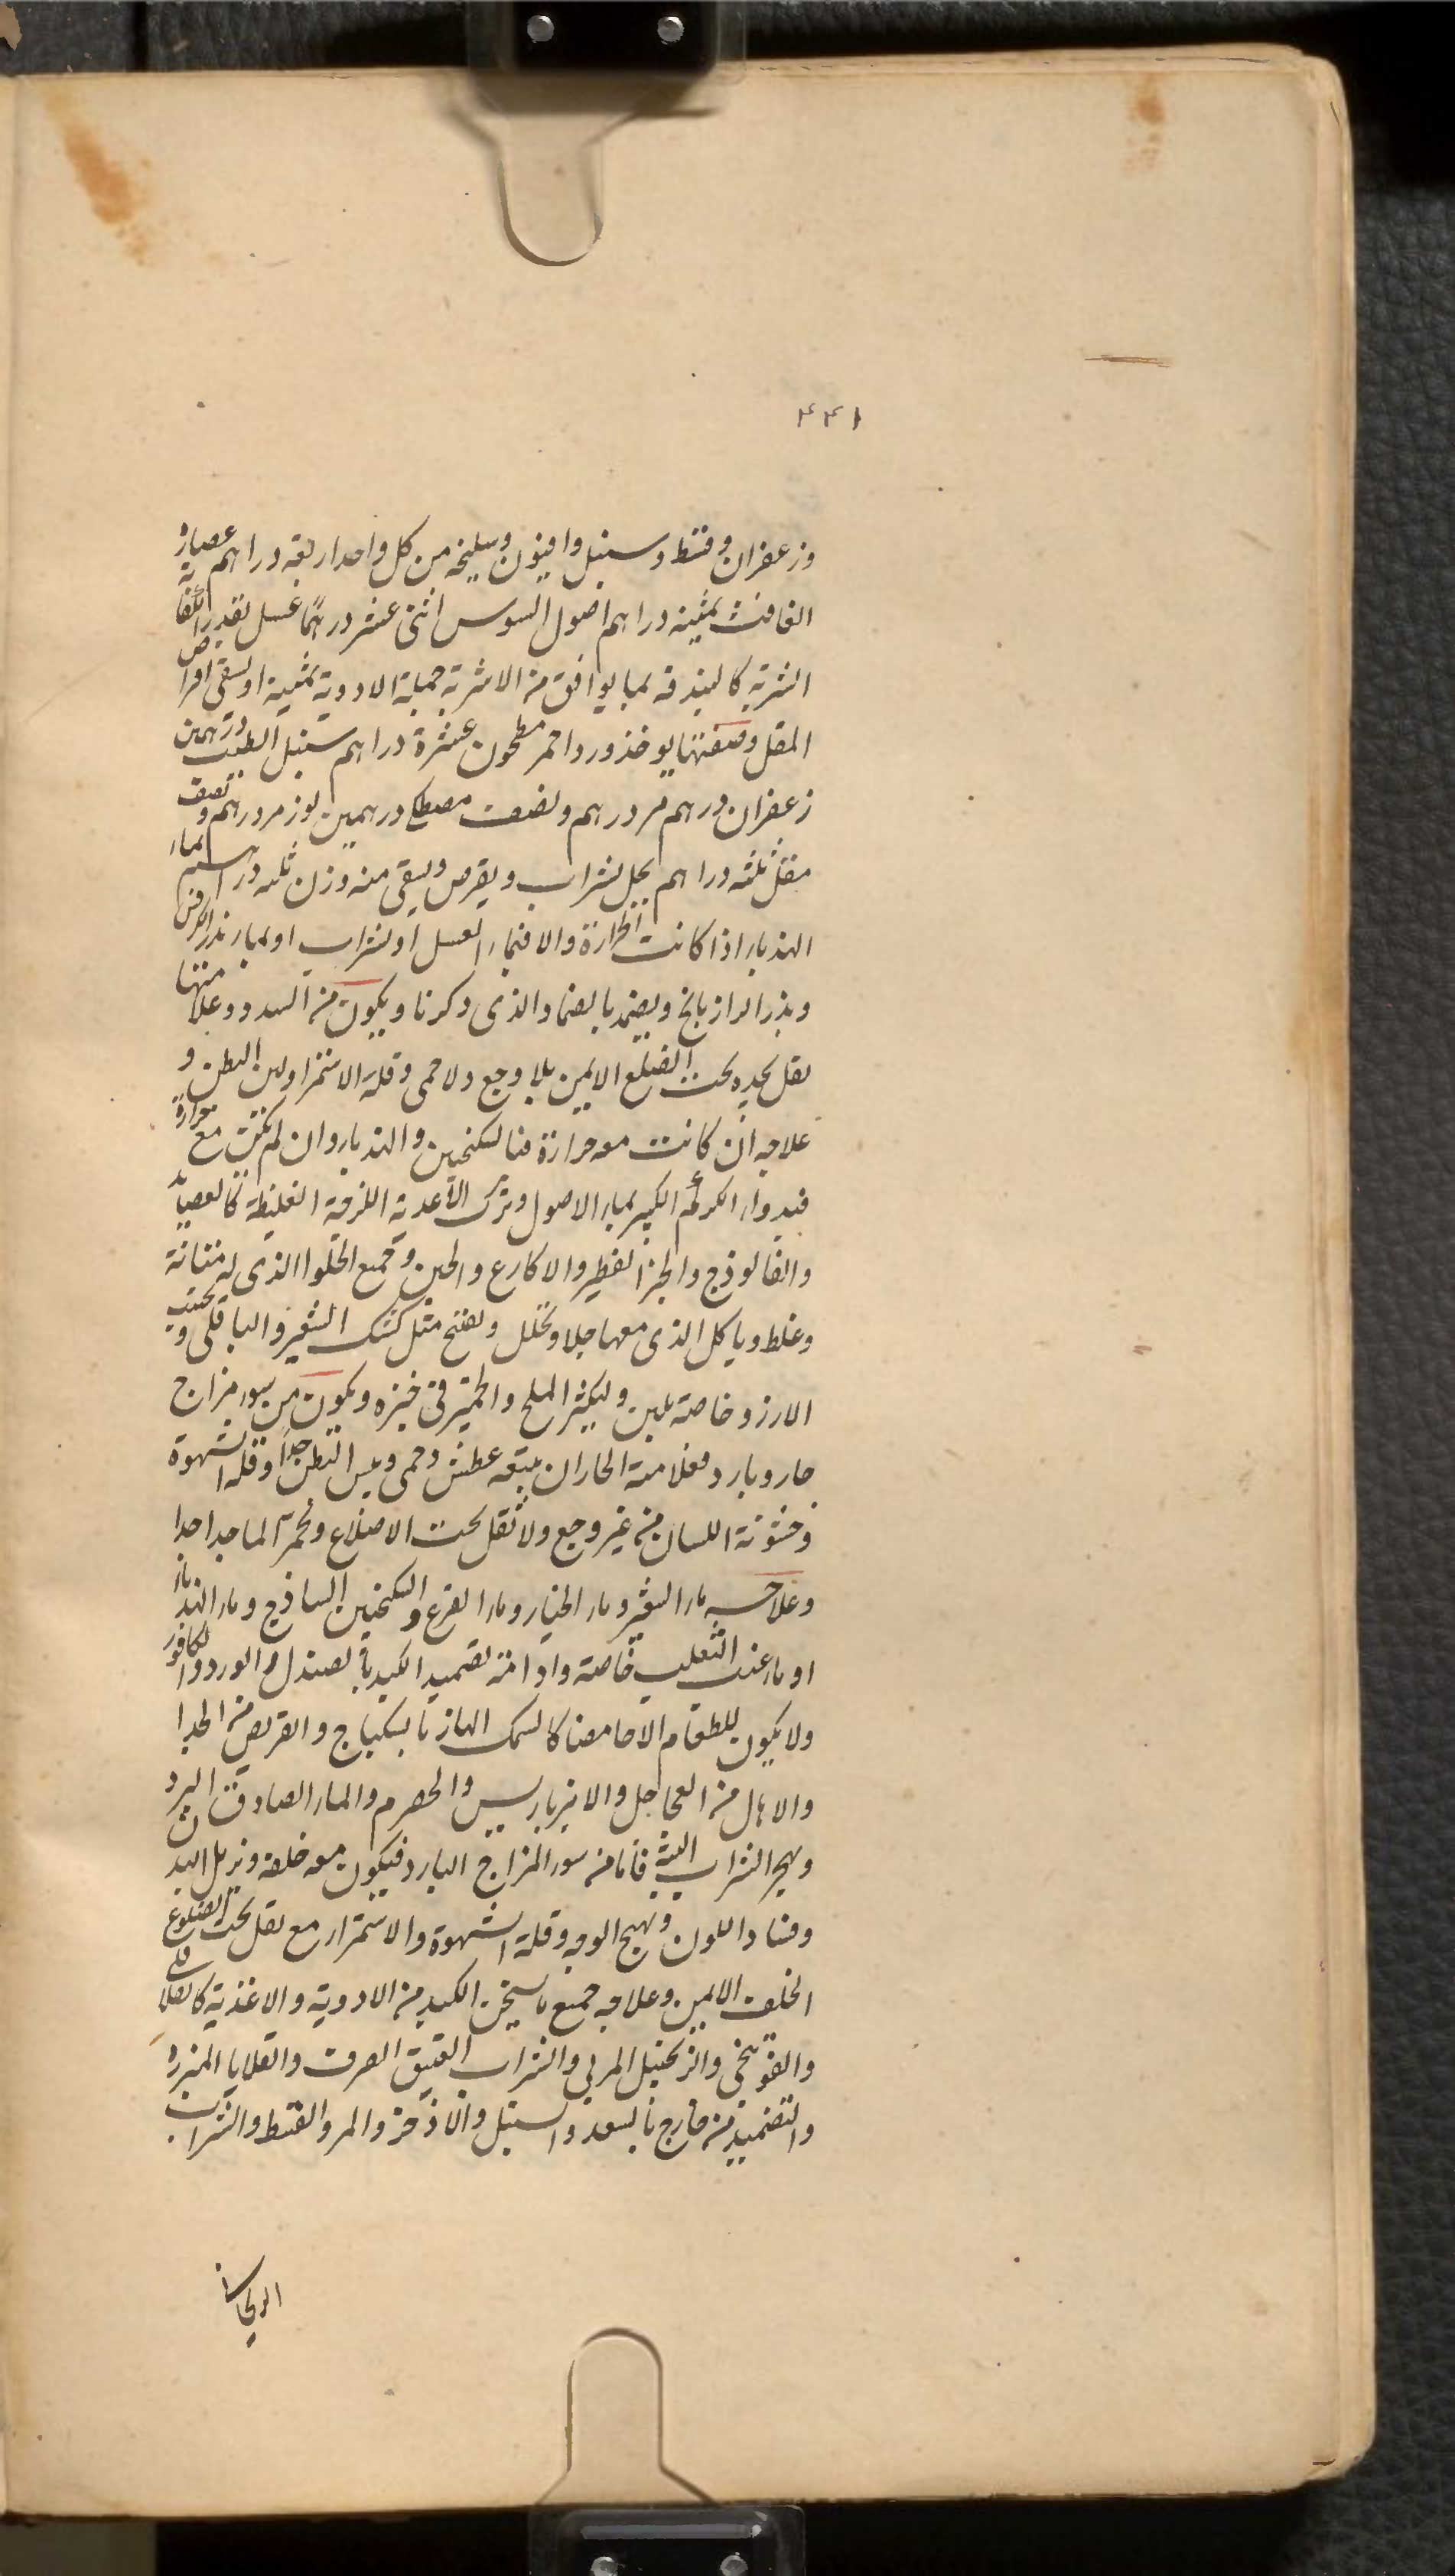 ٤٤١
وزعفران وقسط وسنبل وافيون وسليخه من كل واحد اربعة دراهم عصارة
الغافث ثمنية دراهم اصول السوس اثنى عشر درهما عسل بقدر الكفاية
الشربة كالبندقة بما يوافق من الاشربة جملة الادوية ثمنية او يسقى اقراص
المقل وصفتها يوخذ ورد احمر مطحون عشرة دراهم سنبل الطيب درهمين
زعفران درهم مر درهم ونصف مصطكى درهمين لوز مر درهم ونصف
مقل ثلثه دراهم يحل بشراب ويقرص ويسقى منه وزن ثلثه دراهم بماء
الهندباء اذا كانت الحرارة والا فبماء العسل او بشراب او بماء بذر الكرفس
وبذر الرازيانج ويضمد بالضماد الذى ذكرنا ويكون من السدد وعلامتها
ثقل يجده تحت الضلع الايمن بلا وجع ولا حمى وقلة الاستمرا ولين البطن و
علاجه ان كانت معه حرارة فبالسكنجبين والهندباء وان لم تكن مع حرارة
فبدواء الكركم الكبير بماء الاصول وترك الاغدية اللزجة الغليظة كالعصيدة
والفالوذج والخبز الفطير والاكارع والجبن وجميع الحلوا الذى له متانة
وغلظ وياكل الذى معها جلا وتحلل وتفتح مثل كشك الشعير والباقلى ويجتنب
الارز وخاصة بلبن وليكثر الملح والخمير فى خبزه ويكون من سوء مزاج
حار وبارد فعلامة الحار ان يتبعه عطش وحمى ويبس البطن جدا وقلة الشهوة
وخشونة اللسان من غير وجع ولا ثقل تحت الاضلاع وتحمر الما جدا جدا
وعلاجه ماء الشعير وماء الخيار وماء القرع والسكنجبين الساذج وماء الهندباء
او ماء عنب الثعلب خاصة وادامة تضميد الكبد بالصندل والورد والكافور
ولا يكون للطعام الا حامضا كالسمك الهازبا بسكباج والقريص من الجدا
والاهال من العجاجل والانبرباريس والحصرم والماء الصادق البرد
ويهجر الشراب البتة فاما من سوء المزاج البارد فيكون معه خلفة وتربل البدن
وفساد اللون وتهيج الوجه وقلة الشهوة والاستمراء مع ثقل تحت الضلوع
الخلف الايمن وعلاجه جميع ما يسخن الكبد من الادوية والاغذية كالفلافلى
والفوتنجى والزنجبيل المربى والشراب العتيق الصرف والقلايا المبزره
والتضميد من خارج بالسعد والسنبل والاذخر والمر والقسط والشراب
الريحانى